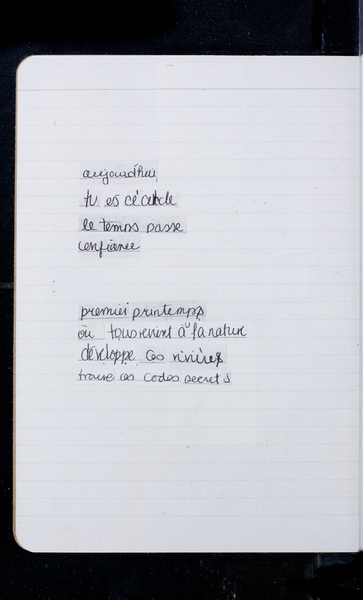 aujourd'hui
tu es
le temps passe
confiance
premier printemps
où tous revient à la nature
développe ces rivières
trouve ces codes secrets